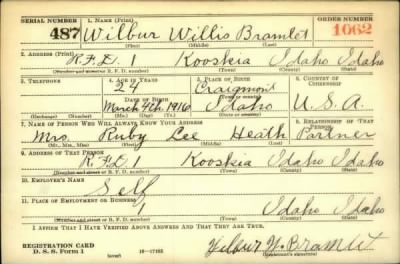 SERIAL NUMBER 1. NAME (Print) ORDER NUMBER
487 Wilbur Willis Bramlet 1062
(First) (Middle) (Last)
2. ADDRESS (Print)
R.F.D. 1 Kooskia Idaho Idaho
(Number and street or R. F. D. number) (Town) (County) (State)
3. TELEPHONE 4. AGE IN YEARS 5. PLACE OF BIRTH 6. COUNTRY OF CITIZENSHIP
24 Craigmont
DATE OF BIRTH (Town or county)
March 9th 1916 Idaho U.S.A.
(Exchange) (Number) (Mo.) (Day) (Yr.) (State or country)
7. NAME OF PERSON WHO WILL ALWAYS KNOW YOUR ADDRESS 8. RELATIONSHIP OF THAT PERSON
Mrs. Ruby Lee Heath Partner
(Mr., Mrs., Miss) (First) (Middle) (Last)
9. ADDRESS OF THAT PERSON
R.F.D. 1 Kooskia Idaho Idaho
(Number and street or R. F. D. number) (Town) (County) (State)
10. EMPLOYER'S NAME
Self
11. PLACE OF EMPLOYMENT OR BUSINESS
1 Idaho Idaho
(Number and street or R. F. D. number) (Town) (County) (State)
I AFFIRM THAT I HAVE VERIFIED ABOVE ANSWERS AND THAT THEY ARE TRUE.
REGISTRATION CARD
D. S. S. Form 1 16—17105 Wilbur W. Bramlet
(over) (Registrant's signature)